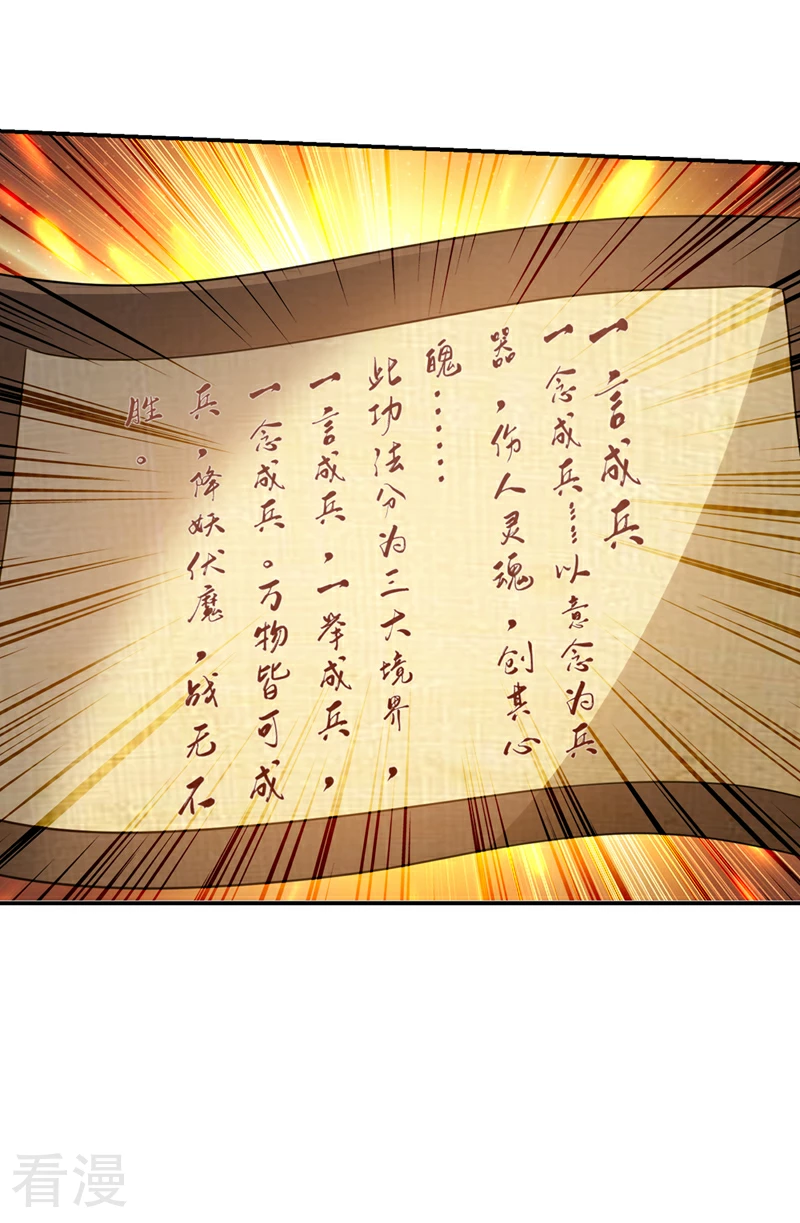 一言成兵
一念成兵……以意念为兵
器，伤人灵魂，创其心
魄……
此功法分为三大境界，
一言成兵，一举成兵，
一念成兵。万物皆可成
兵，降妖伏魔，战无不
胜。
看漫